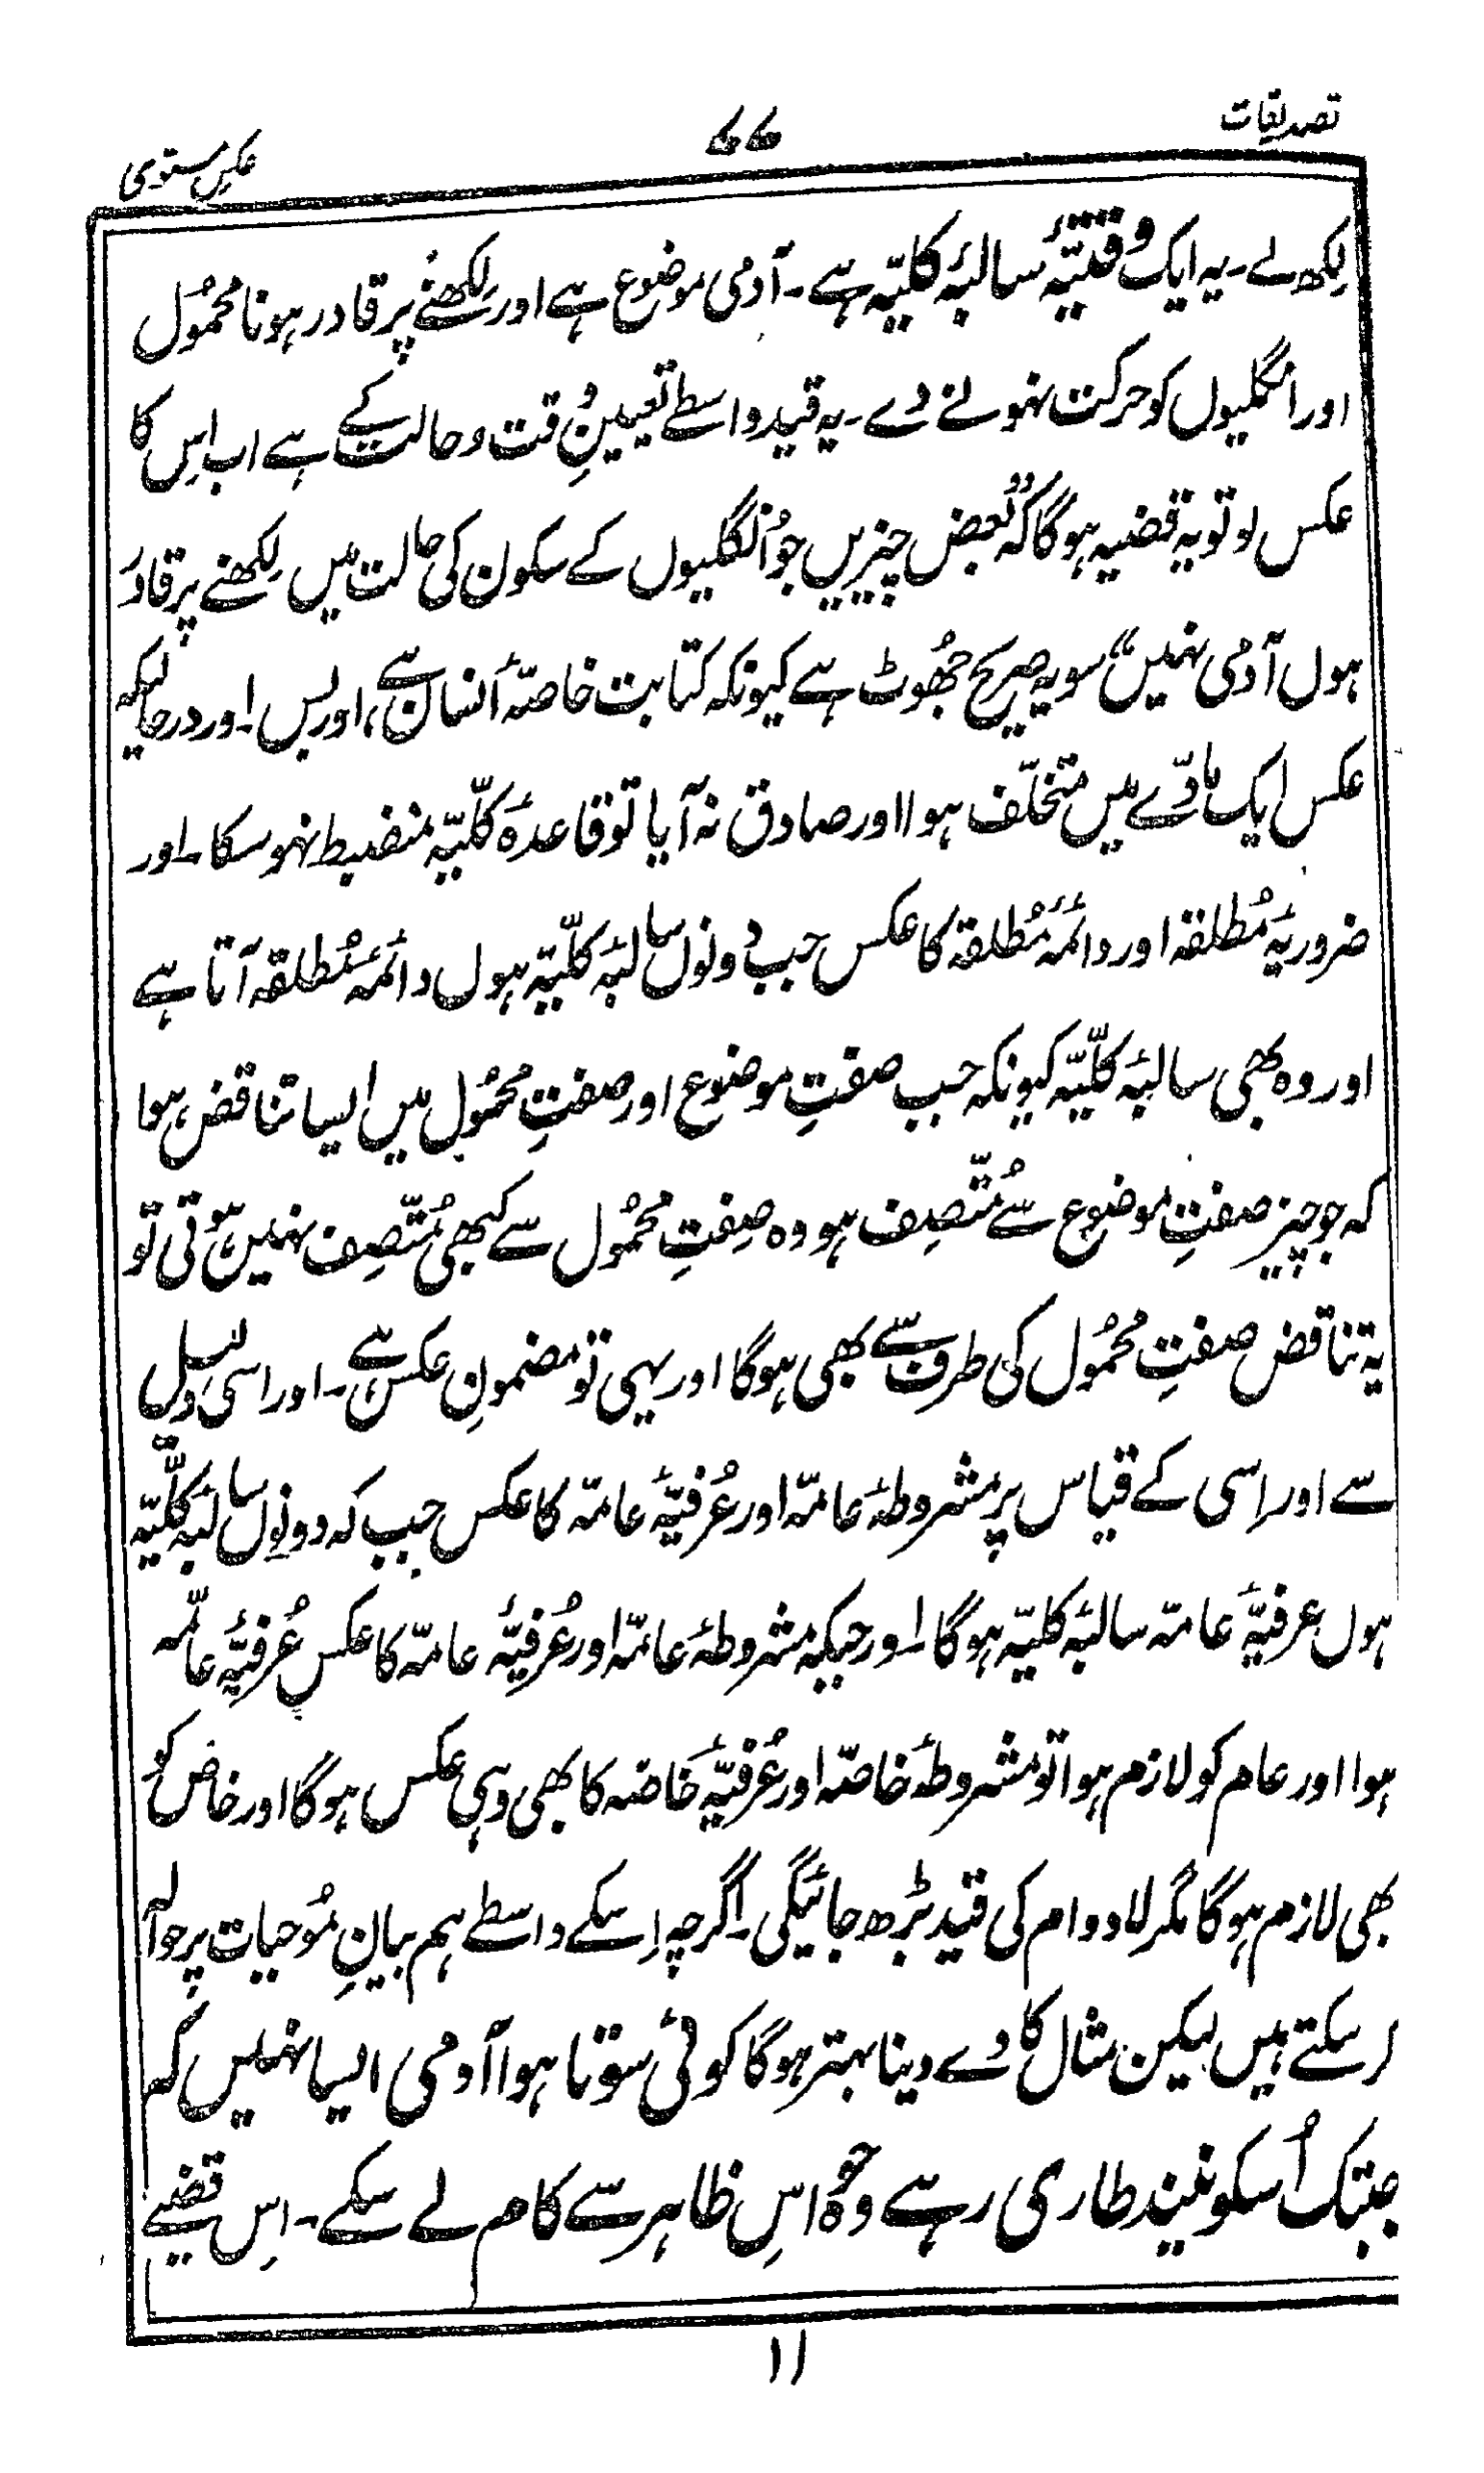 تصدیقات
۷۷
عکسِ مستوی
لِکھ لے۔ یہ ایک وقتیّہُ سالبۂ کلیّہ ہے۔ آدمی موضوع ہے اور لِکھنے پر قادر ہونا محمُول
اور انگلیوں کو حرکت نہونے دے۔ یہ قید واسطے تعیینِ وقت و حالت کے ہے اب اِس کا
عکس لو تو یہ قضیہ ہوگا کہ ”بعض چیزیں جو اُنگلیوں کے سکون کی حالت میں لِکھنے پر قادر
ہوں آدمی نہیں“ سو یہ صریح جھُوٹ ہے کیونکہ کتابت خاصّۂ انسان ہے، اور بس۔ اور درحالیکہ
عکس ایک مادّے میں متخلّف ہوا اور صادق نہ آیا تو قاعدۂ کلّیّہ منضبط نہوسکا۔ اور
ضروریۂ مُطلقہ اور دائمۂ مُطلقہ کا عکس جب دونوں سالبۂ کلّیّہ ہوں دائمۂ مُطلقہ آتا ہے
اور وہ بھی سالبۂ کلّیّہ کیونکہ جب صفتِ موضوع اور صفتِ محمُول میں ایسا تناقض ہوا
کہ جو چیز صفتِ موضوع سے مُتّصِف ہو وہ صِفتِ محمُول سے کبھی مُتّصِف نہیں ہوتی تو
یہ تناقض صفتِ محمُول کی طرف سے بھی ہوگا اور یہی تو مضمونِ عکس ہے۔ اور اسی دلیل
سے اور اِسی کے قیاس پر مشروطۂ عامّہ اور عُرفیّۂ عامّہ کا عکس جب کہ دونوں سالبۂ کلّیّہ
ہوں عرفیّۂ عامّہ سالبۂ کلیّہ ہوگا۔ اور جبکہ مشروطۂ عامّہ اور عُرفیّۂ عامّہ کا عکس عُرفیّۂ عامّہ
ہوا اور عام کو لازم ہوا تو مشروطۂ خاصّہ اور عُرفیّۂ خاصّہ کا بھی وہی عکس ہوگا اور خاص کو
بھی لازم ہوگا مگر لادوام کی قید بڑھ جائیگی۔ اگرچہ اِسکے واسطے ہم بیانِ مُوجبات پر حوالہ
کرسکتے ہیں لیکن مثال کا دے دینا بہتر ہوگا کوئی سوتا ہوا آدمی ایسا نہیں کہ
جبتک اُسکو نیند طاری رہے وہ حواسِ ظاہر سے کام لے سکے۔ اِس قضیے
۱۱